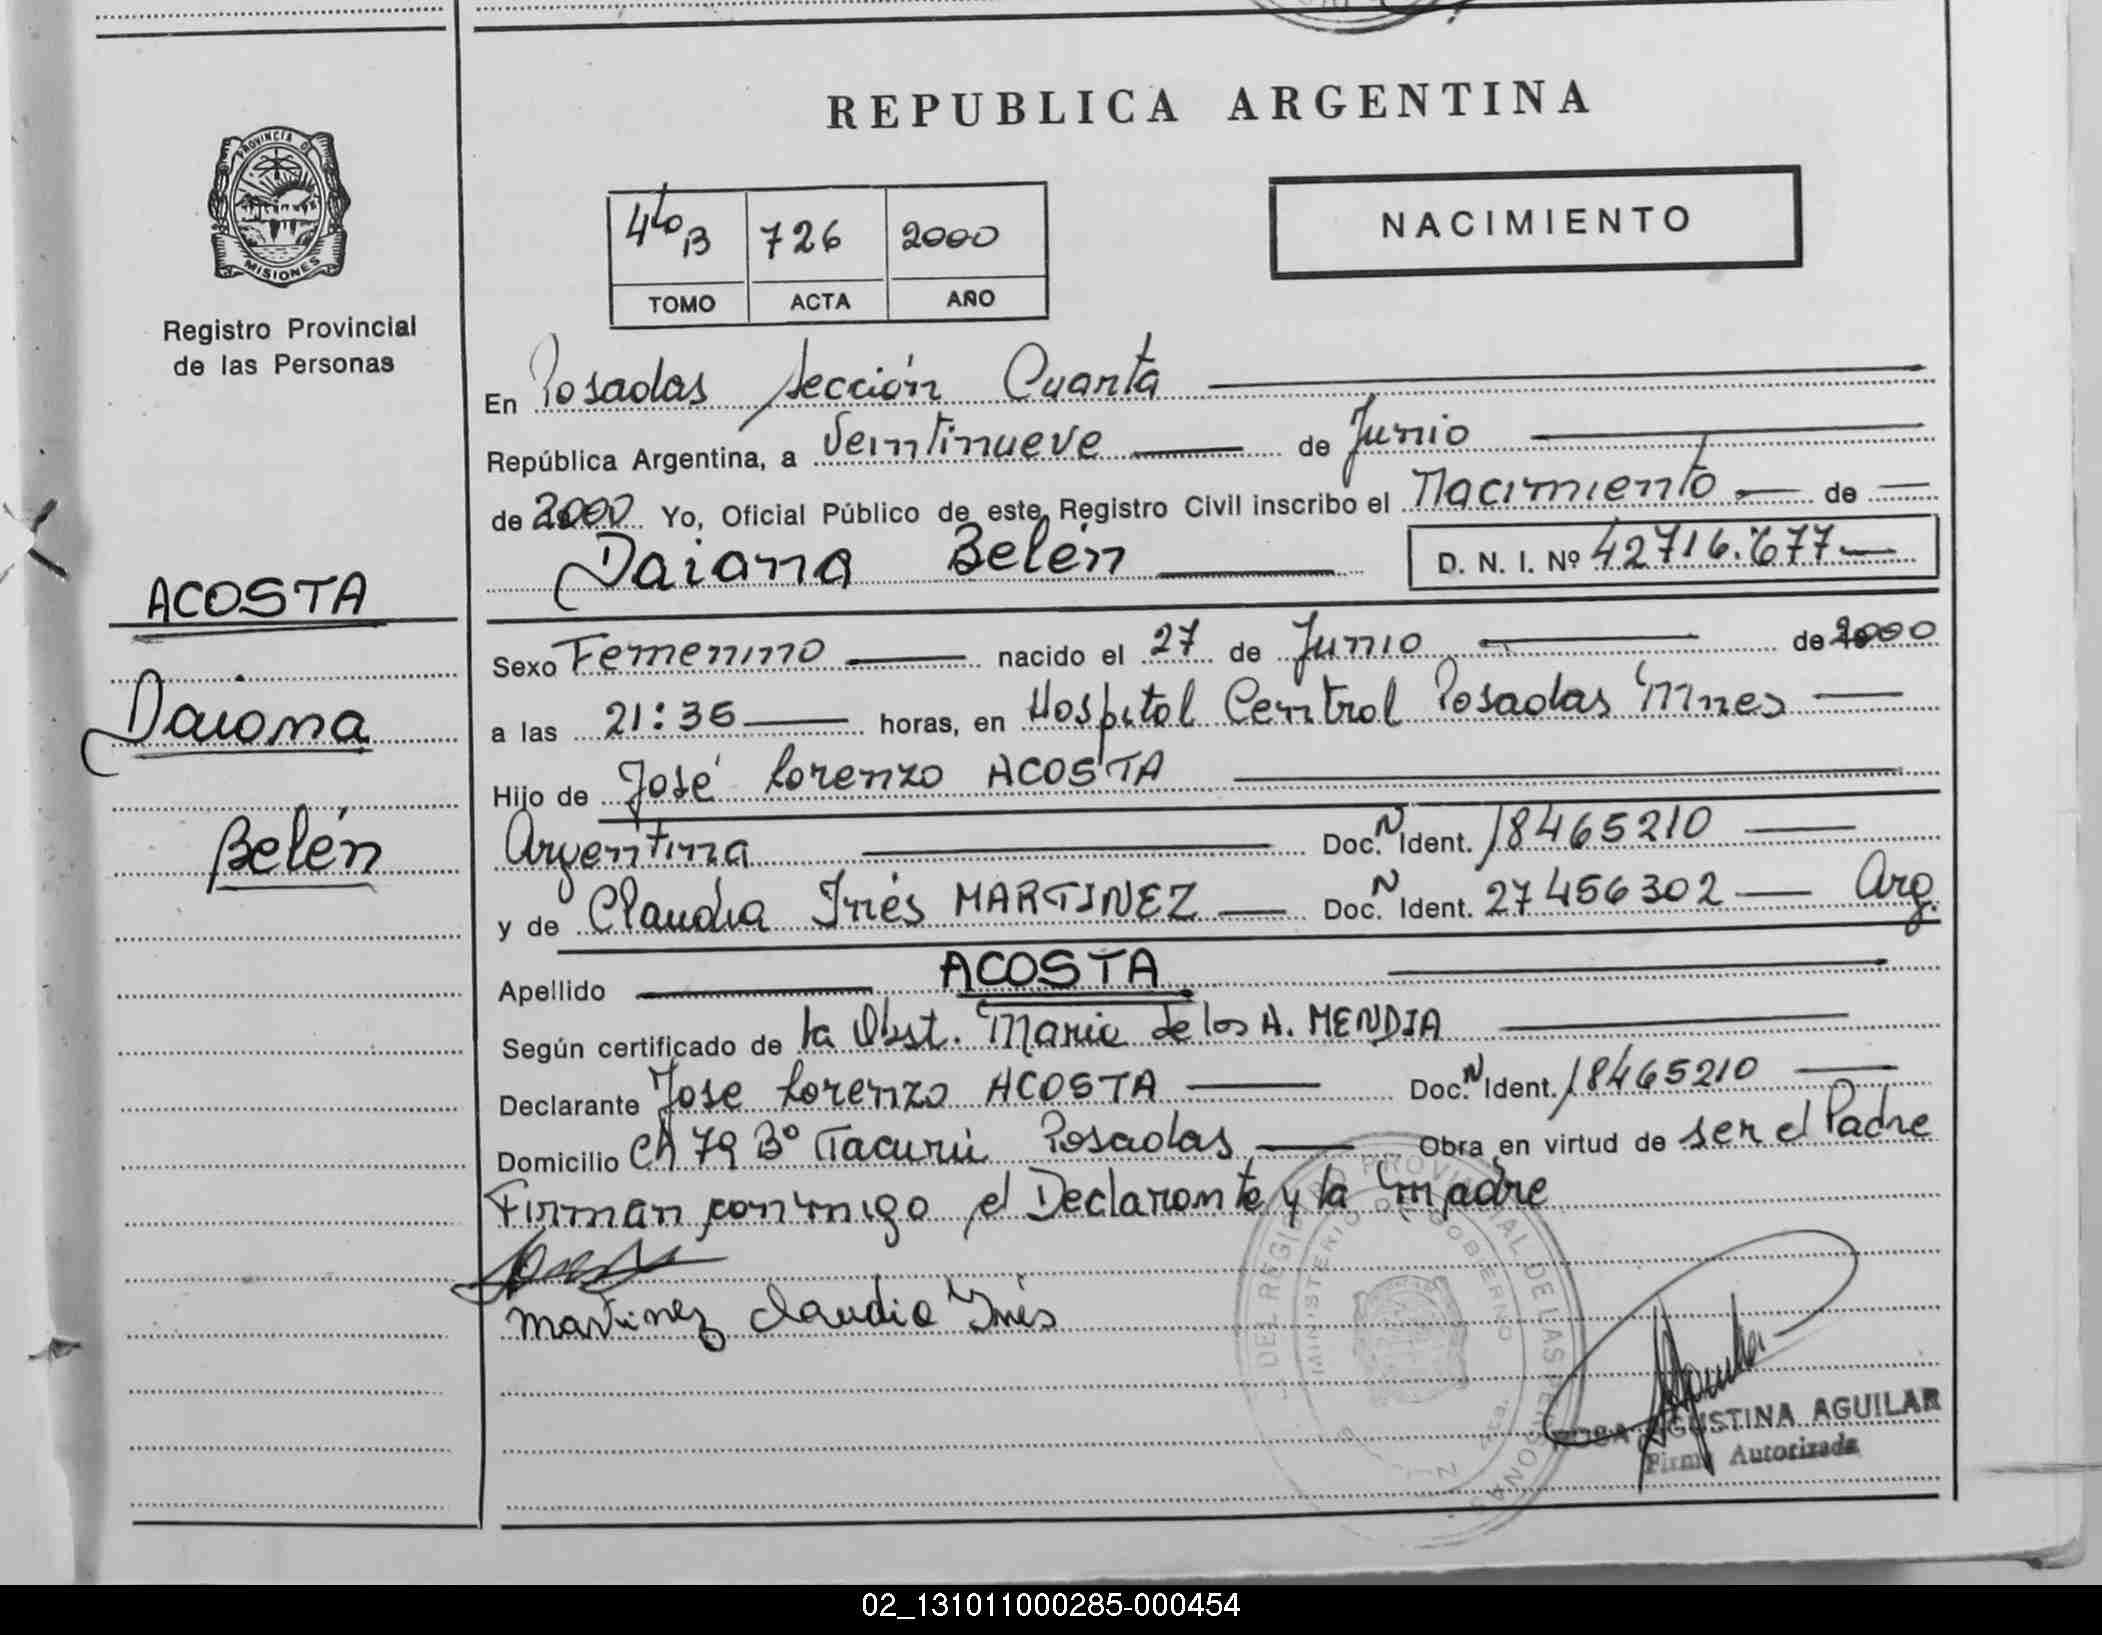 PROVINCIA DE
MISIONES
Registro Provincial
de las Personas
ACOSTA
Daiana
Belén
REPUBLICA ARGENTINA
4to B 726 2000
TOMO ACTA AÑO
NACIMIENTO
En Posadas Sección Cuarta
República Argentina, a Veintinueve de Junio
de 2000 Yo, Oficial Público de este Registro Civil inscribo el Nacimiento de
Daiana Belén D. N. I. Nº 42716.677
Sexo Femenino nacido el 27 de Junio de 2000
a las 21:35 horas, en Hospital Central Posadas Mnes
Hijo de José Lorenzo ACOSTA
Argentina Doc. N Ident. 18465210
y de Claudia Inés MARTINEZ Doc. N Ident. 27456302 Arg.
Apellido ACOSTA
Según certificado de la Obst. Maria de los A. MENDIA
Declarante Jose Lorenzo ACOSTA Doc. N Ident. 18465210
Domicilio Ch 79 Bº Tacurú Posadas Obra en virtud de ser el Padre
Firman conmigo el Declarante y la madre
Martinez Claudia Inés
DEL REGISTRO PROVINCIAL DE LAS PERSONAS
MINISTERIO DE GOBIERNO
ROSA AGUSTINA AGUILAR
Firma Autorizada
02_131011000285-000454